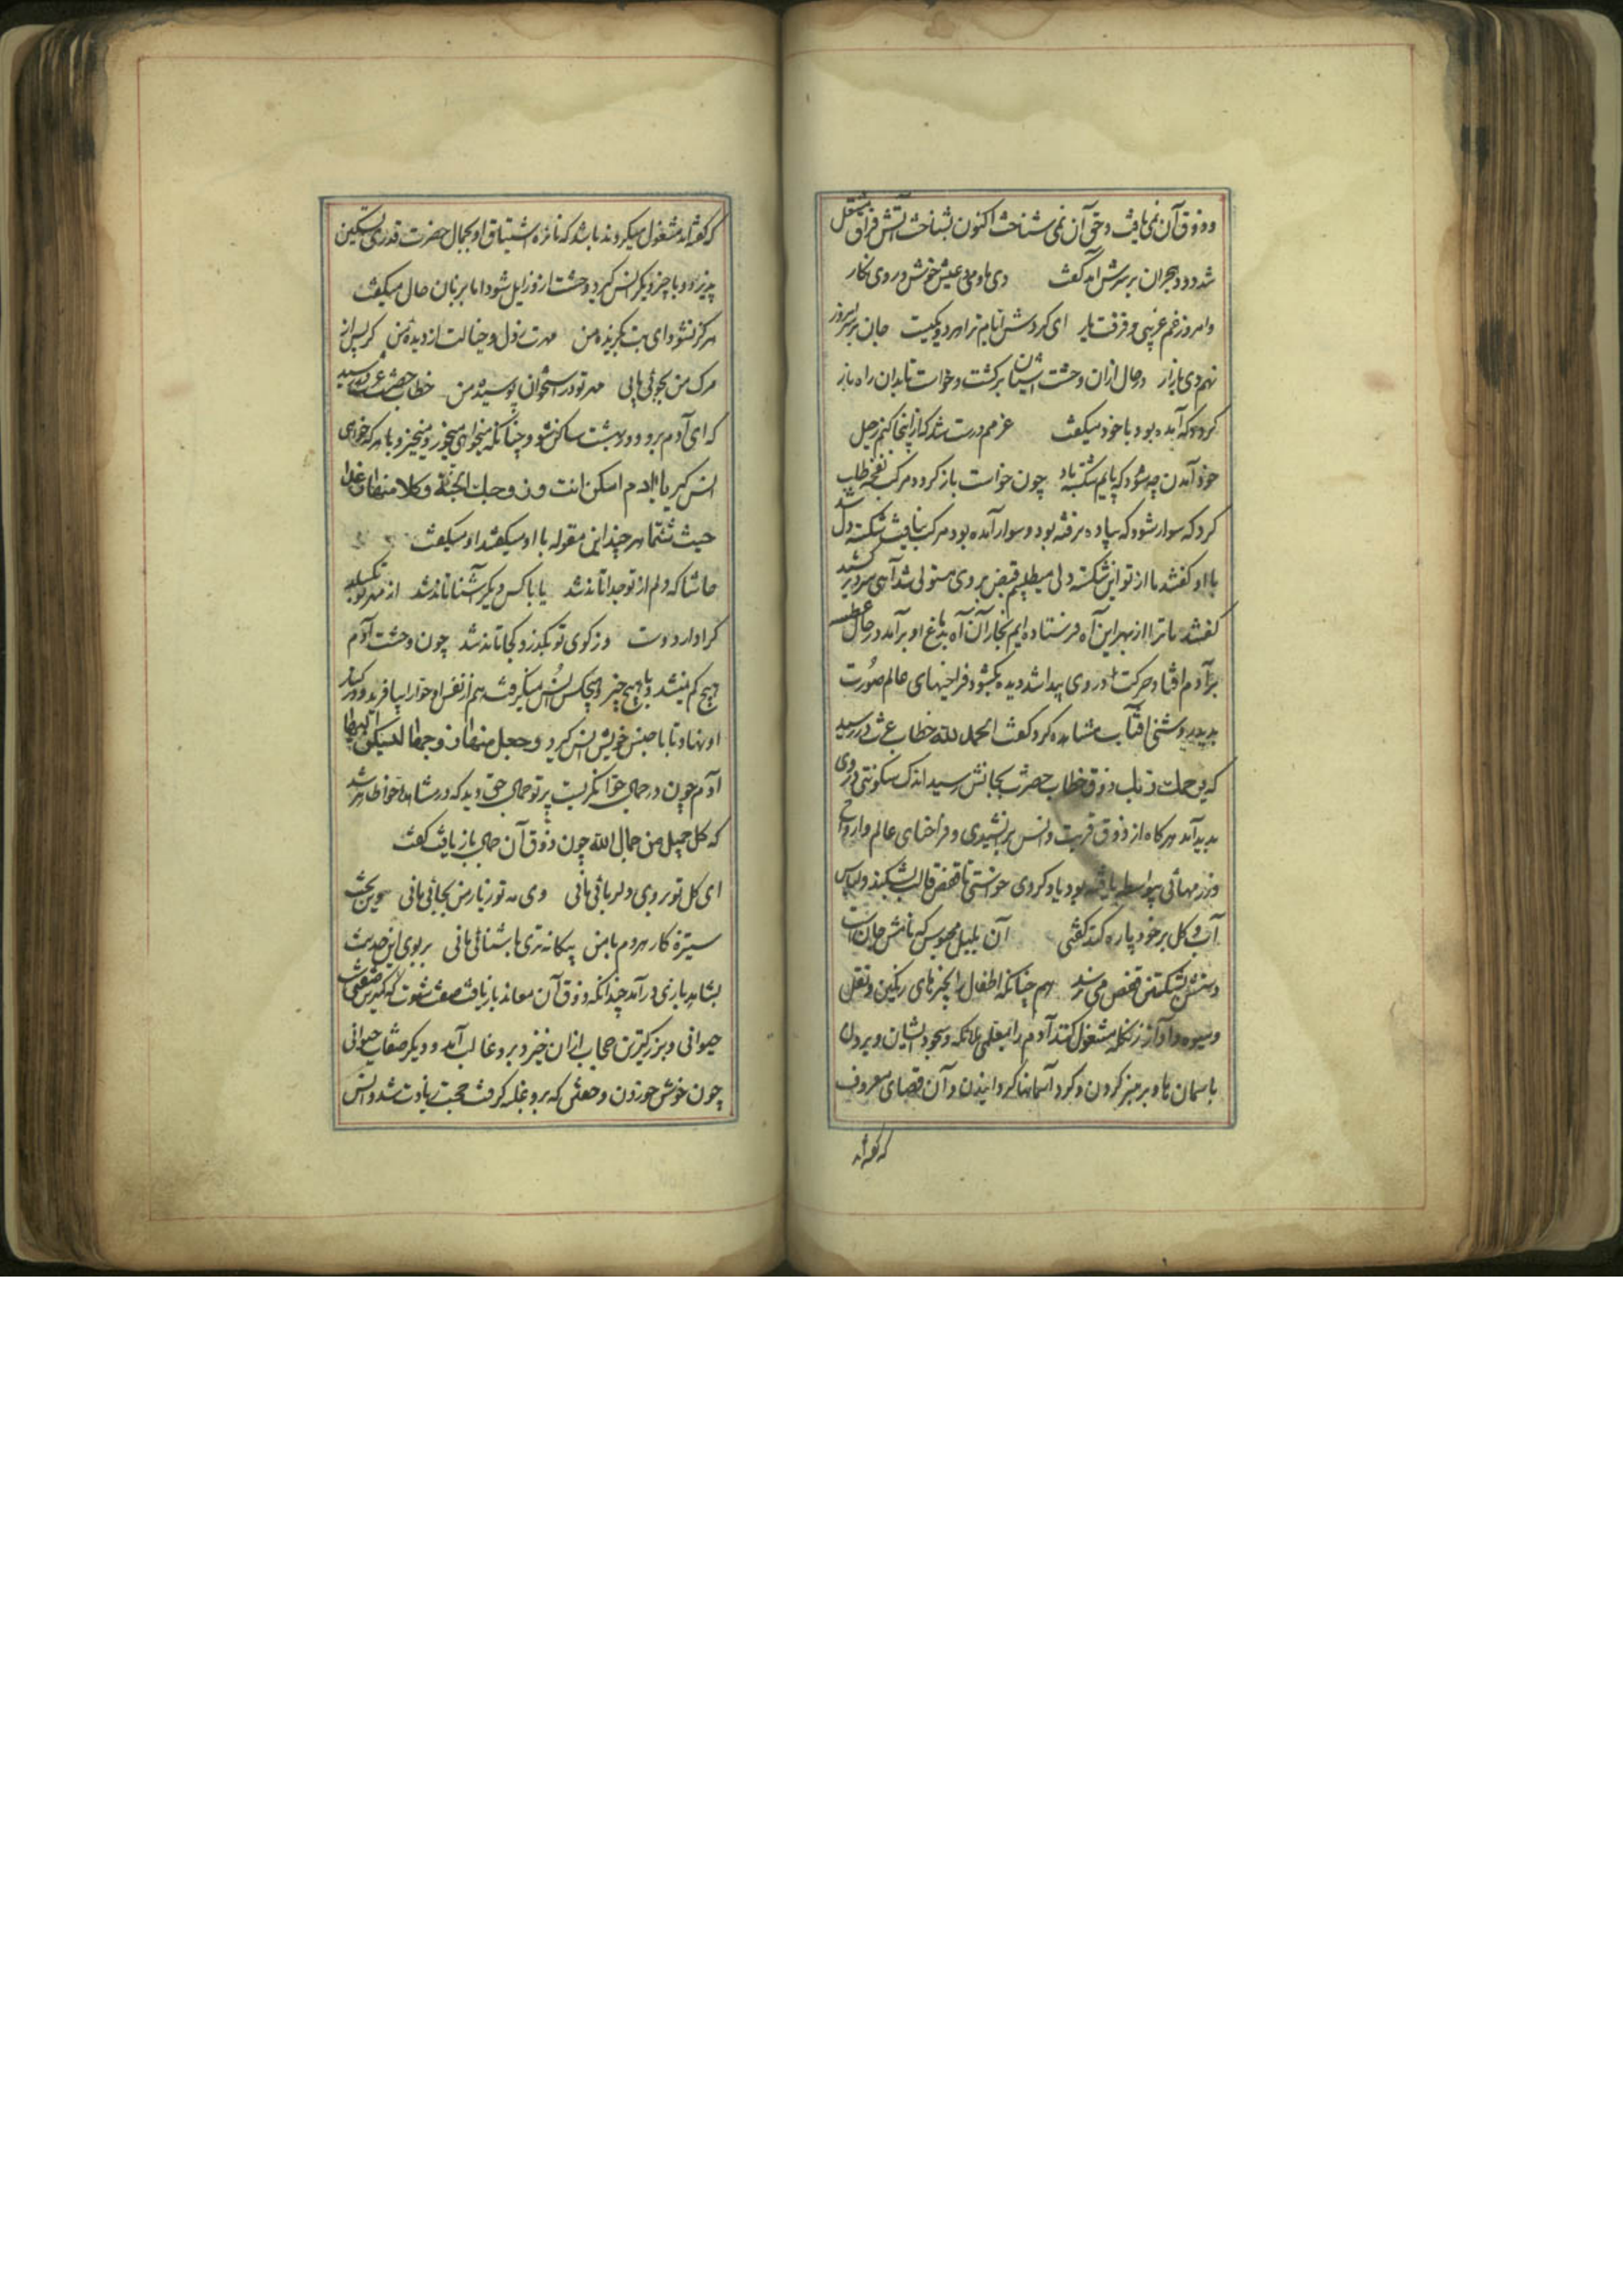 و ذوق آن نمی یافت و حق آن نمی شناخت اکنون بشناخت آتش فراق مشتعل
شد و دود هجران بر سرش آمد گفت دی ما و می و عیش خوش و روی نگار
و امروز غم غریبی و فرقت یار ای گردش ایام ترا هر دو یکیست جان بر سر امروز
نهم دی باز آر در حال ازان وحشت آشیان برگشت و خواست تا بدان راه باز
گردد که آمده بود با خود میگفت عزمم درست شد کز اینجا کنم رحیل
خود آمدن چه بود که پایم شکسته باد چون خواست باز گردد مرکب نفخه طلب
کرد که سوار شود که پیاده نرفته بود و سوار آمده بود مرکب نیافت شکسته دل شد
با او گفتند ما از تو این شکسته دلی میطلبیم قبض بر وی مستولی شد آهی سرد بر کشید
گفتند ما ترا از بهر این آه فرستاده ایم بخار آن آه بدماغ او بر آمد در حال عطسه
بر آدم افتاد حرکت در وی پیدا شد دیده بگشود فراخیهای عالم صورت
بدید روشنی آفتاب مشاهده کرد گفت الحمد لله خطاب عزت در رسید
که یرحمک ربک ذوق خطاب حضرت بجانش رسید اندک سکونتی در وی
پدید آمد هر گاه از ذوق قربت و انس بر اندیشیدی و فراخنای عالم ارواح
و زر مهائی بیواسطه یافته بود یاد کردی خواستی تا قفص قالب بشکند و لباس
آب و گل بر خود پاره کند گفتی آن بلبل محبوس که نامش جان است
دستش بشکستن قفص می نرسد هم چنانکه اطفال را بچیزهای رنگین و نقل
و میوه و آواز زنگله مشغول کنند آدم را بمعلمی ملائکه و سجود ایشان و بردن
باسمان ها و بر منبر کردن و گرد آسمانها گردانیدن و آن قصهای معروف
که گفته اند
که گفته اند مشغول میکردند باشد که نائره اشتیاق او بجمال حضرت قدری تسکین
پذیرد و با چیز دیگر انس گیرد و وحشت ازو زایل شود اما بزبان حال میگفت
هرگز نشود ای بت بگزیده من مهرت ز دل و خیالت از دیده من گر پس از
مرگ من بجوئی یابی مهر تو در استخوان پوسیده من خطاب حضرت عزت در رسید
که ای آدم برو و در بهشت ساکن شو و چنانکه میخواهی میخور و میخیز و با هر که خواهی
انس گیر یا ادم اسکن انت و زوجک الجنة و کلا منها رغدا
حیث شئتما هر چند این مقوله با او میگفتند او میگفت
حاشا که دلم از تو جدا تاند شد یا با کس دیگر آشنا تاند شد از مهر تو بگسلد
کرا دارد دوست وز کوی تو بگذرد کجا تاند شد چون وحشت آدم
هیچ کم نمیشد و با هیچ چیز و هیچکس انس نمیگرفت هم از نفس او حوا را بیافرید و در کنار
او نهاد تا با جنس خویش انس گیرد و جعل منها زوجها لیسکن الیها
آدم چون در جمال حوا نگریست پرتو جمال حق دید که در مشاهده حوا ظاهر شد
که کل جمیل من جمال الله چون ذوق آن جمال باز یافت گفت
ای گل تو بروی دلربائی مانی وی مه تو ز یار من بجائی مانی وین بخت
ستیزه کار هر دم با من بیگانه تری باشنائی مانی بر بوی این حدیث
بشاهد بازی در آمد چندانکه ذوق آن معامله باز یافت صفت شهوت که کمترین صفتهاست
حیوانی و بزرگترین حجاب ازان خیزد بر و غالب آمد و دیگر صفات حیوانی
چون خوش خوردن و خفتن که برو غلبه گرفت محبت زیادت شد و انس